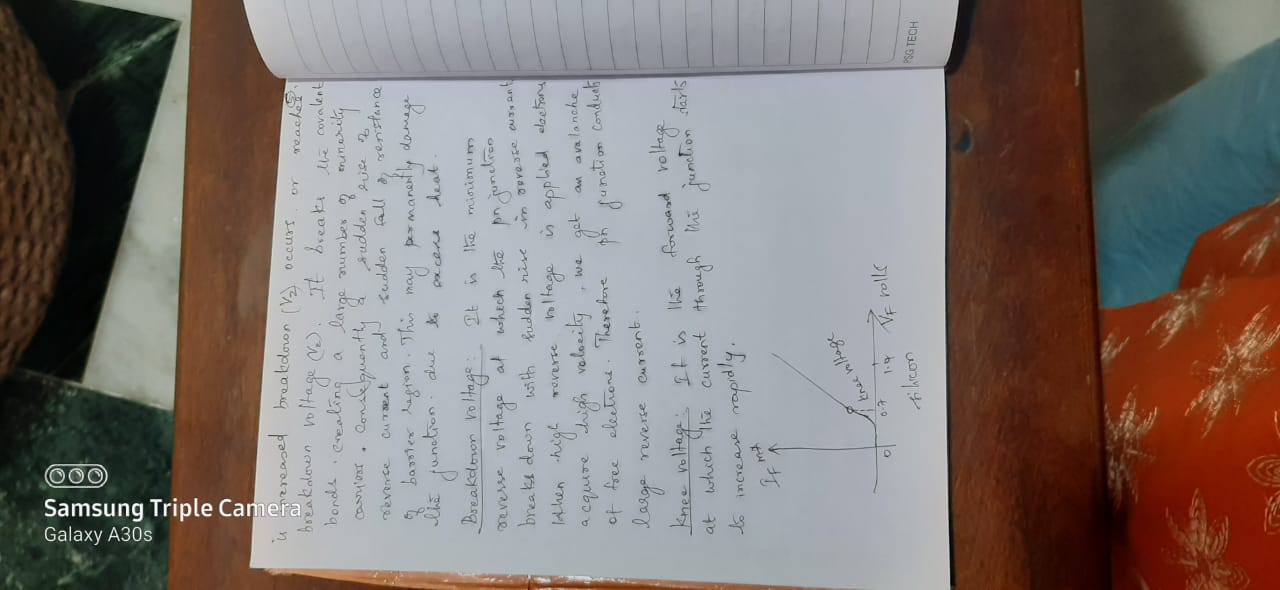 5
is increased breakdown (Vz) occurs. or reaches
breakdown voltage (Vz). It breaks the covalent
bonds. creating a large number of minority
carriers. Consequently a sudden rise of
reverse current and sudden fall of resistance
of barrier region. This may permanently damage
the junction. due to excess heat.
Breakdown voltage: It is the minimum
reverse voltage at which the pn junction
breaks down with sudden rise in reverse current.
When high reverse voltage is applied electrons
acquire high velocity, we get an avalanche
of free electrons. Therefore pn junction conducts
large reverse current.
Knee voltage: It is the forward voltage
at which the current through the junction starts
to increase rapidly.
IF mA
knee voltage
0 0.7 1.4 VF volts
silicon
PSG TECH
Samsung Triple Camera
Galaxy A30s